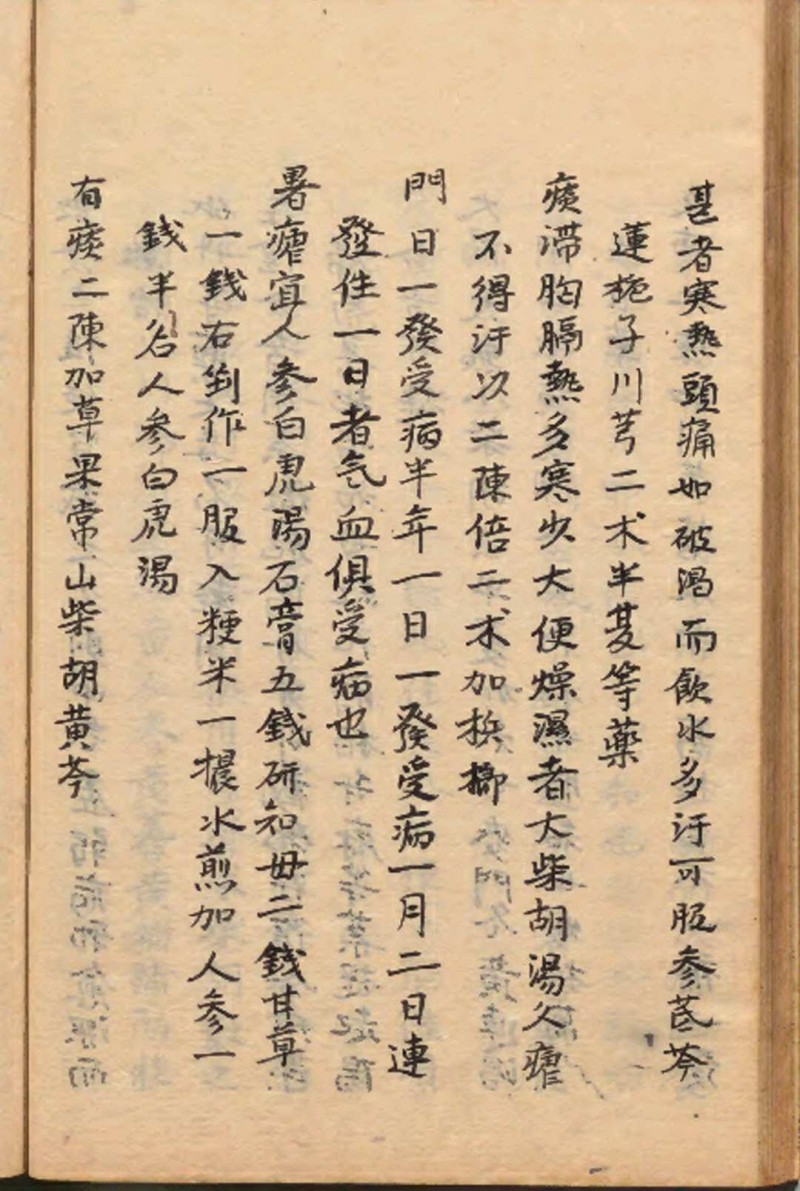 甚者寒熱頭痛如破渴而飲水多汗可服參芪芩
連梔子川芎二术半夏等藥
痰滞胸膈熱多寒少大便燥濕者大柴胡湯久瘧
不得汗以二陳倍二术加槟榔
門日一發受病半年一日一發受病一月二日連
發住一日者气血俱受病也
暑瘧宜人参白虎湯石膏五錢研知毋二錢甘草
一錢右剉作一服入粳米一撮水煎加人参一
錢半名人参白虎湯
有痰二陳加草果常山柴胡黄芩